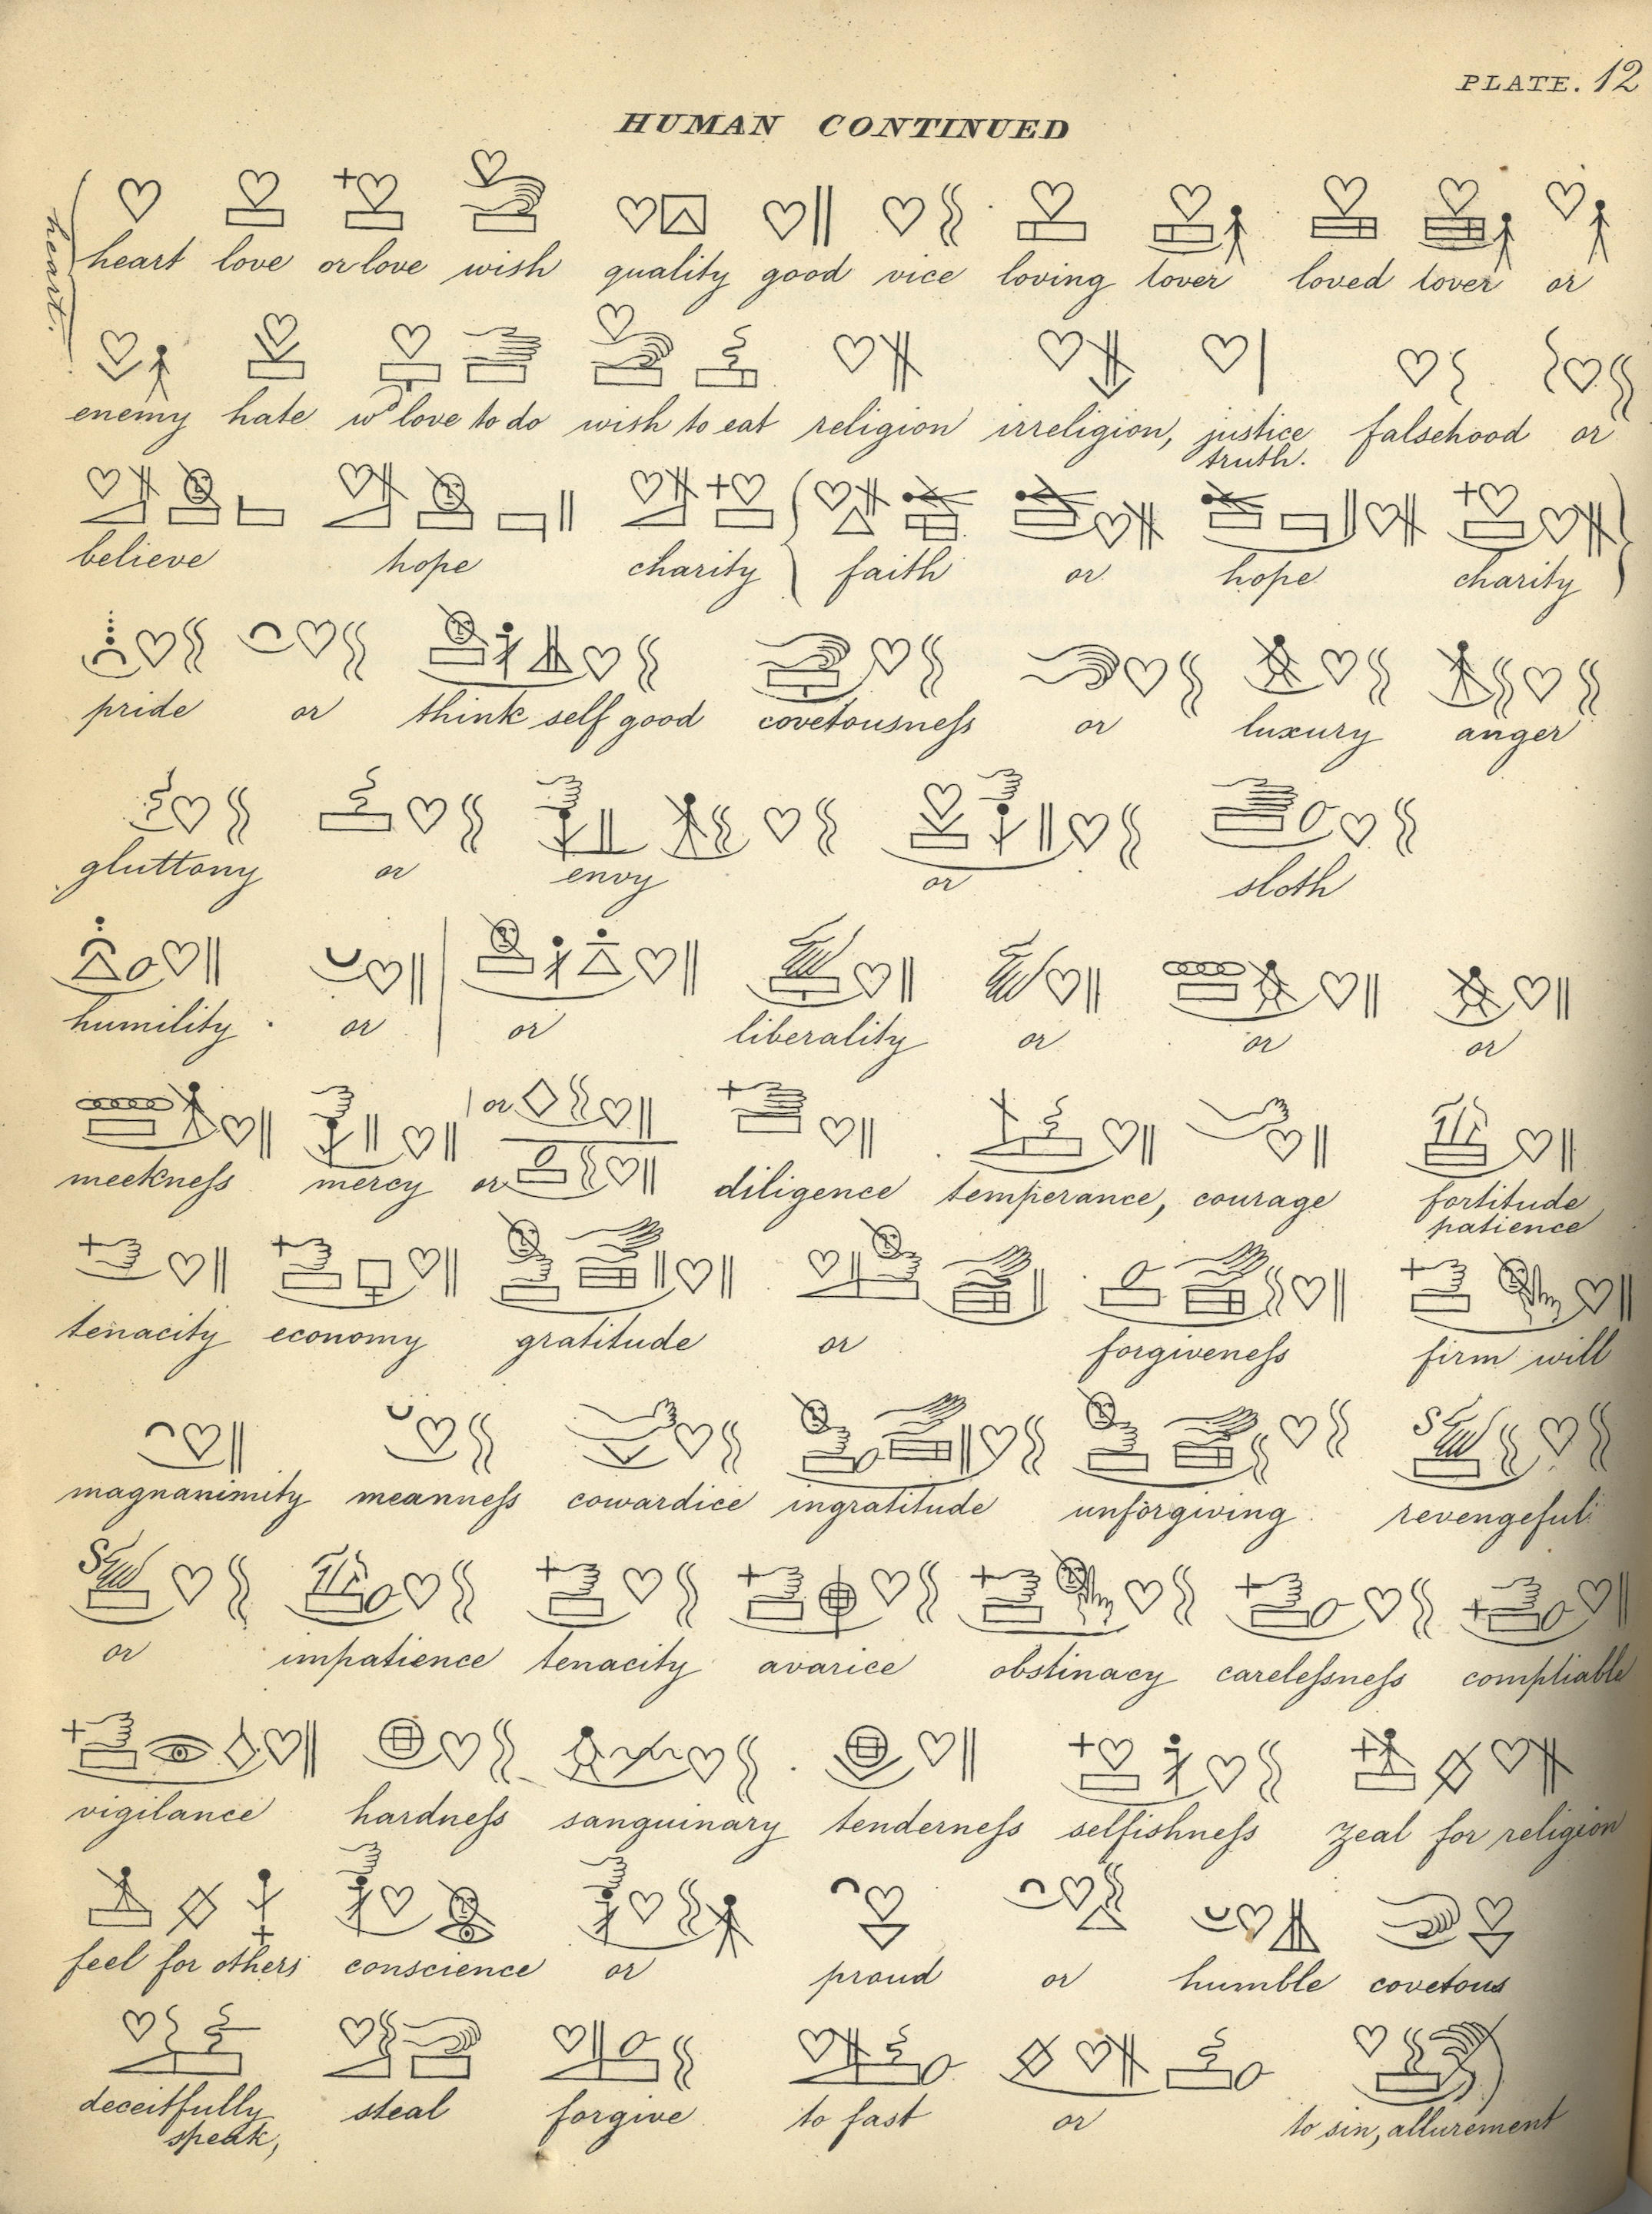 PLATE. 12
HUMAN CONTINUED
heart.
heart love or love wish quality good vice loving lover loved lover or
enemy hate wd love to do wish to eat religion irreligion, justice falsehood or
truth.
believe hope charity faith or hope charity
pride or think self good covetousneſs or luxury anger
gluttony or envy or sloth
humility or or liberality or or or
or
meekneſs mercy or diligence temperance, courage fortitude
patience
tenacity economy gratitude or forgiveneſs firm will
magnanimity meanneſs cowardice ingratitude unforgiving revengeful
or impatience tenacity avarice obstinacy careleſsneſs compliable
vigilance hardneſs sanguinary tenderneſs selfishneſs zeal for religion
feel for others conscience or proud or humble covetous
deceitfully steal forgive to fast or to sin, allurement
speak,